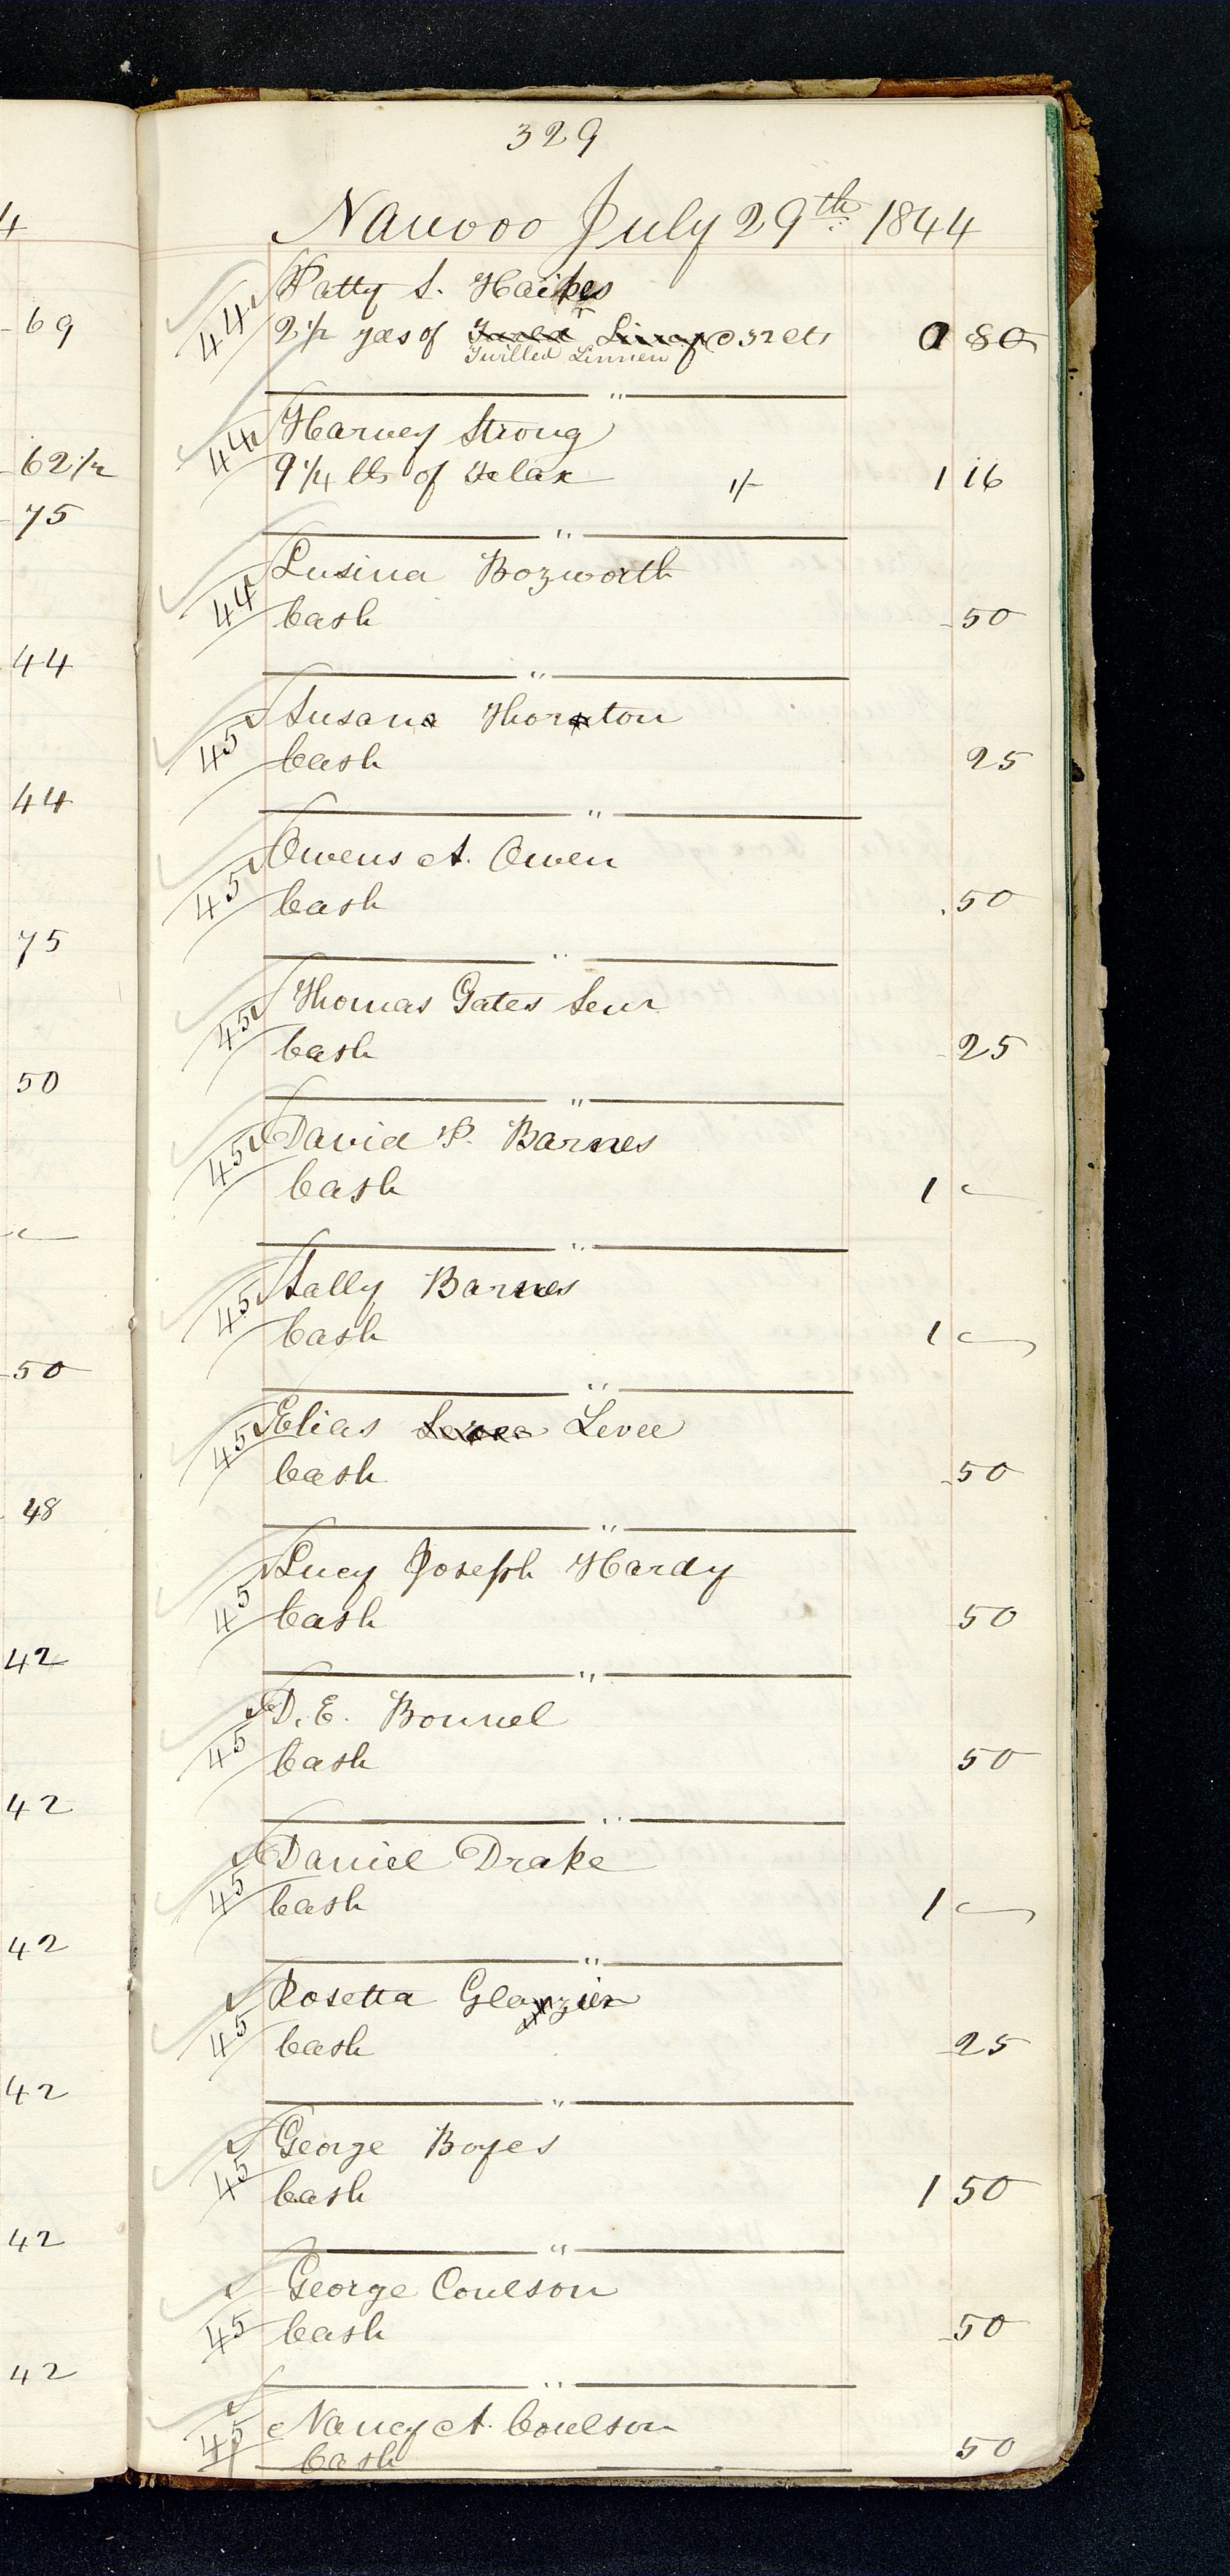 4
69
62 1/2
75
44
44
75
50
50
48
42
42
42
42
42
42
329
Nauvoo July 29th 1844
44 Patty S. Haikes
2 1/2 yds of @ 32 cts 0 80
Twilled Linnen
"
44 Harvey Strong
9 1/4 lbs of Flax 1/- 1 16
"
44 Lusina Bozworth
Cash 50
"
45 Susana Thornton
Cash 25
"
45 Owens A. Owen
Cash 50
"
45 Thomas Gates Senr
Cash 25
"
45 David P. Barnes
Cash 1 —
"
45 Sally Barnes
Cash 1 —
"
45 Elias Levee Levee
Cash 50
"
45 Lucy Joseph Hardy
Cash 50
"
45 D. E. Bonnel
Cash 50
"
45 Daniel Drake
Cash 1 —
"
45 Rosetta Glazier
Cash 25
"
45 George Boyes
Cash 1 50
"
45 George Coulson
Cash 50
"
45 Nancy A. Coulson
Cash 50